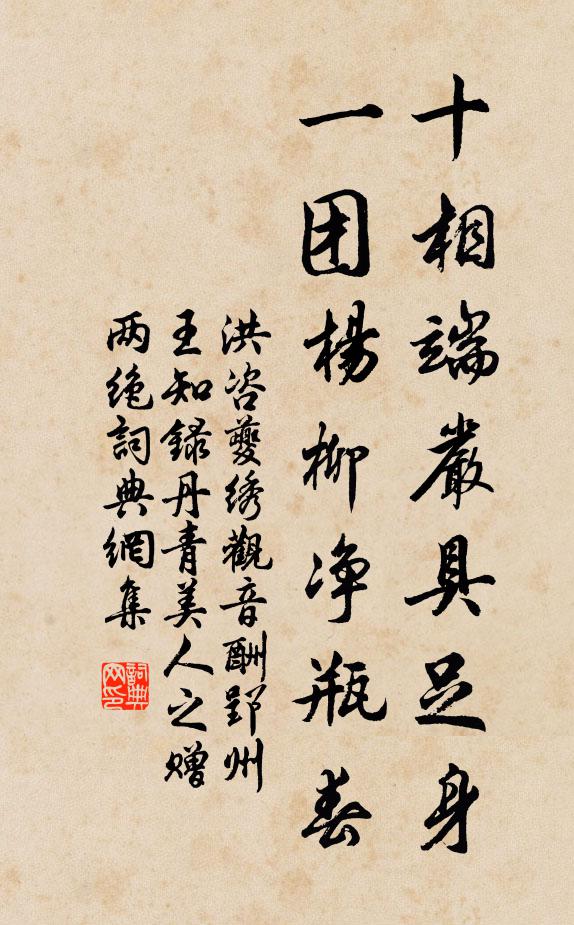 十相端嚴具足身
一团楊柳净瓶春
洪咨夔绣觀音酬郢州
王知録丹青美人之赠
两绝詞典網集
詞典
网印